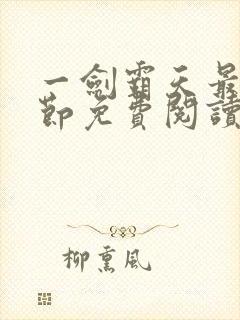 一劍霸天最
節免費閱讀
柳熏風